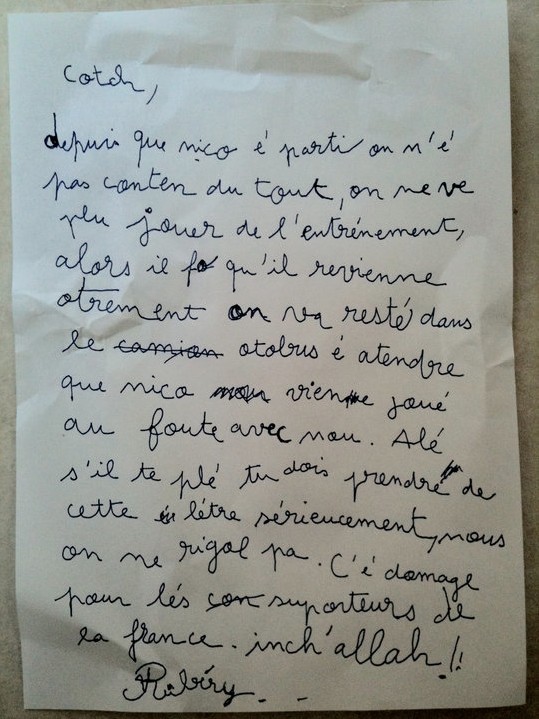 Cotch,
depuis que nico é parti on n'é
pas conten du tout, on ne ve
plu jouer de l'entrénement,
alors il fo qu'il revienne
otrement on va resté dans
le camion otobus é atendre
que nico vienne joué
au foute avec nou. Alé
s'il te plé tu dois prendre de
cette létre sérieucement, nous
on ne rigol pa. C'é domage
pour lés con suporteurs de
la france. inch'allah!!
Ribéry...